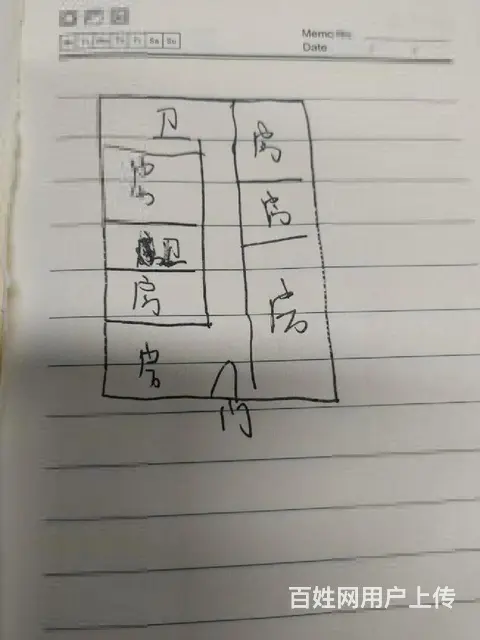 Memo No.
Date
Mo Tu We Th Fr Sa Su
卫
房
房
房
卫
房
房
房
门
百姓网用户上传